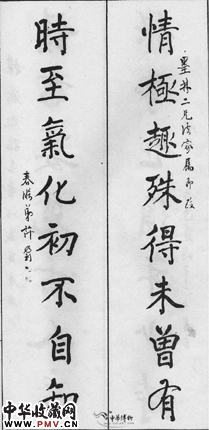 情極趣殊得未曾有
林二兄法家屬
時至氣化初不自知
弟許
中华收藏网
WWW.PMV.CN
中華博物